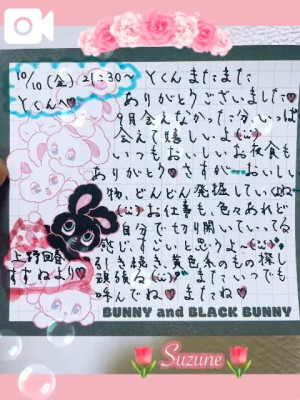 10/10(金) 21:30〜
Yくんへ♡
Yくんまたまた
ありがとうございました♡
9月会えなかった分、いっぱい
会えて嬉しいよ(¨̮)
いつもおいしいお夜食も
ありがとう♡ さすが おいしい
物、どんどん発掘していくね
(¨̮) お仕事も、色々あれど
自分で切り開いていってる
感じ、すごいと思うよ(¨̮)
引き続き、黄色系のもの探し
頑張る(¨̮) またいつでも
呼んでね♡ またね♡
上野回春
すずねより♡
BUNNY and BLACK BUNNY
Suzune